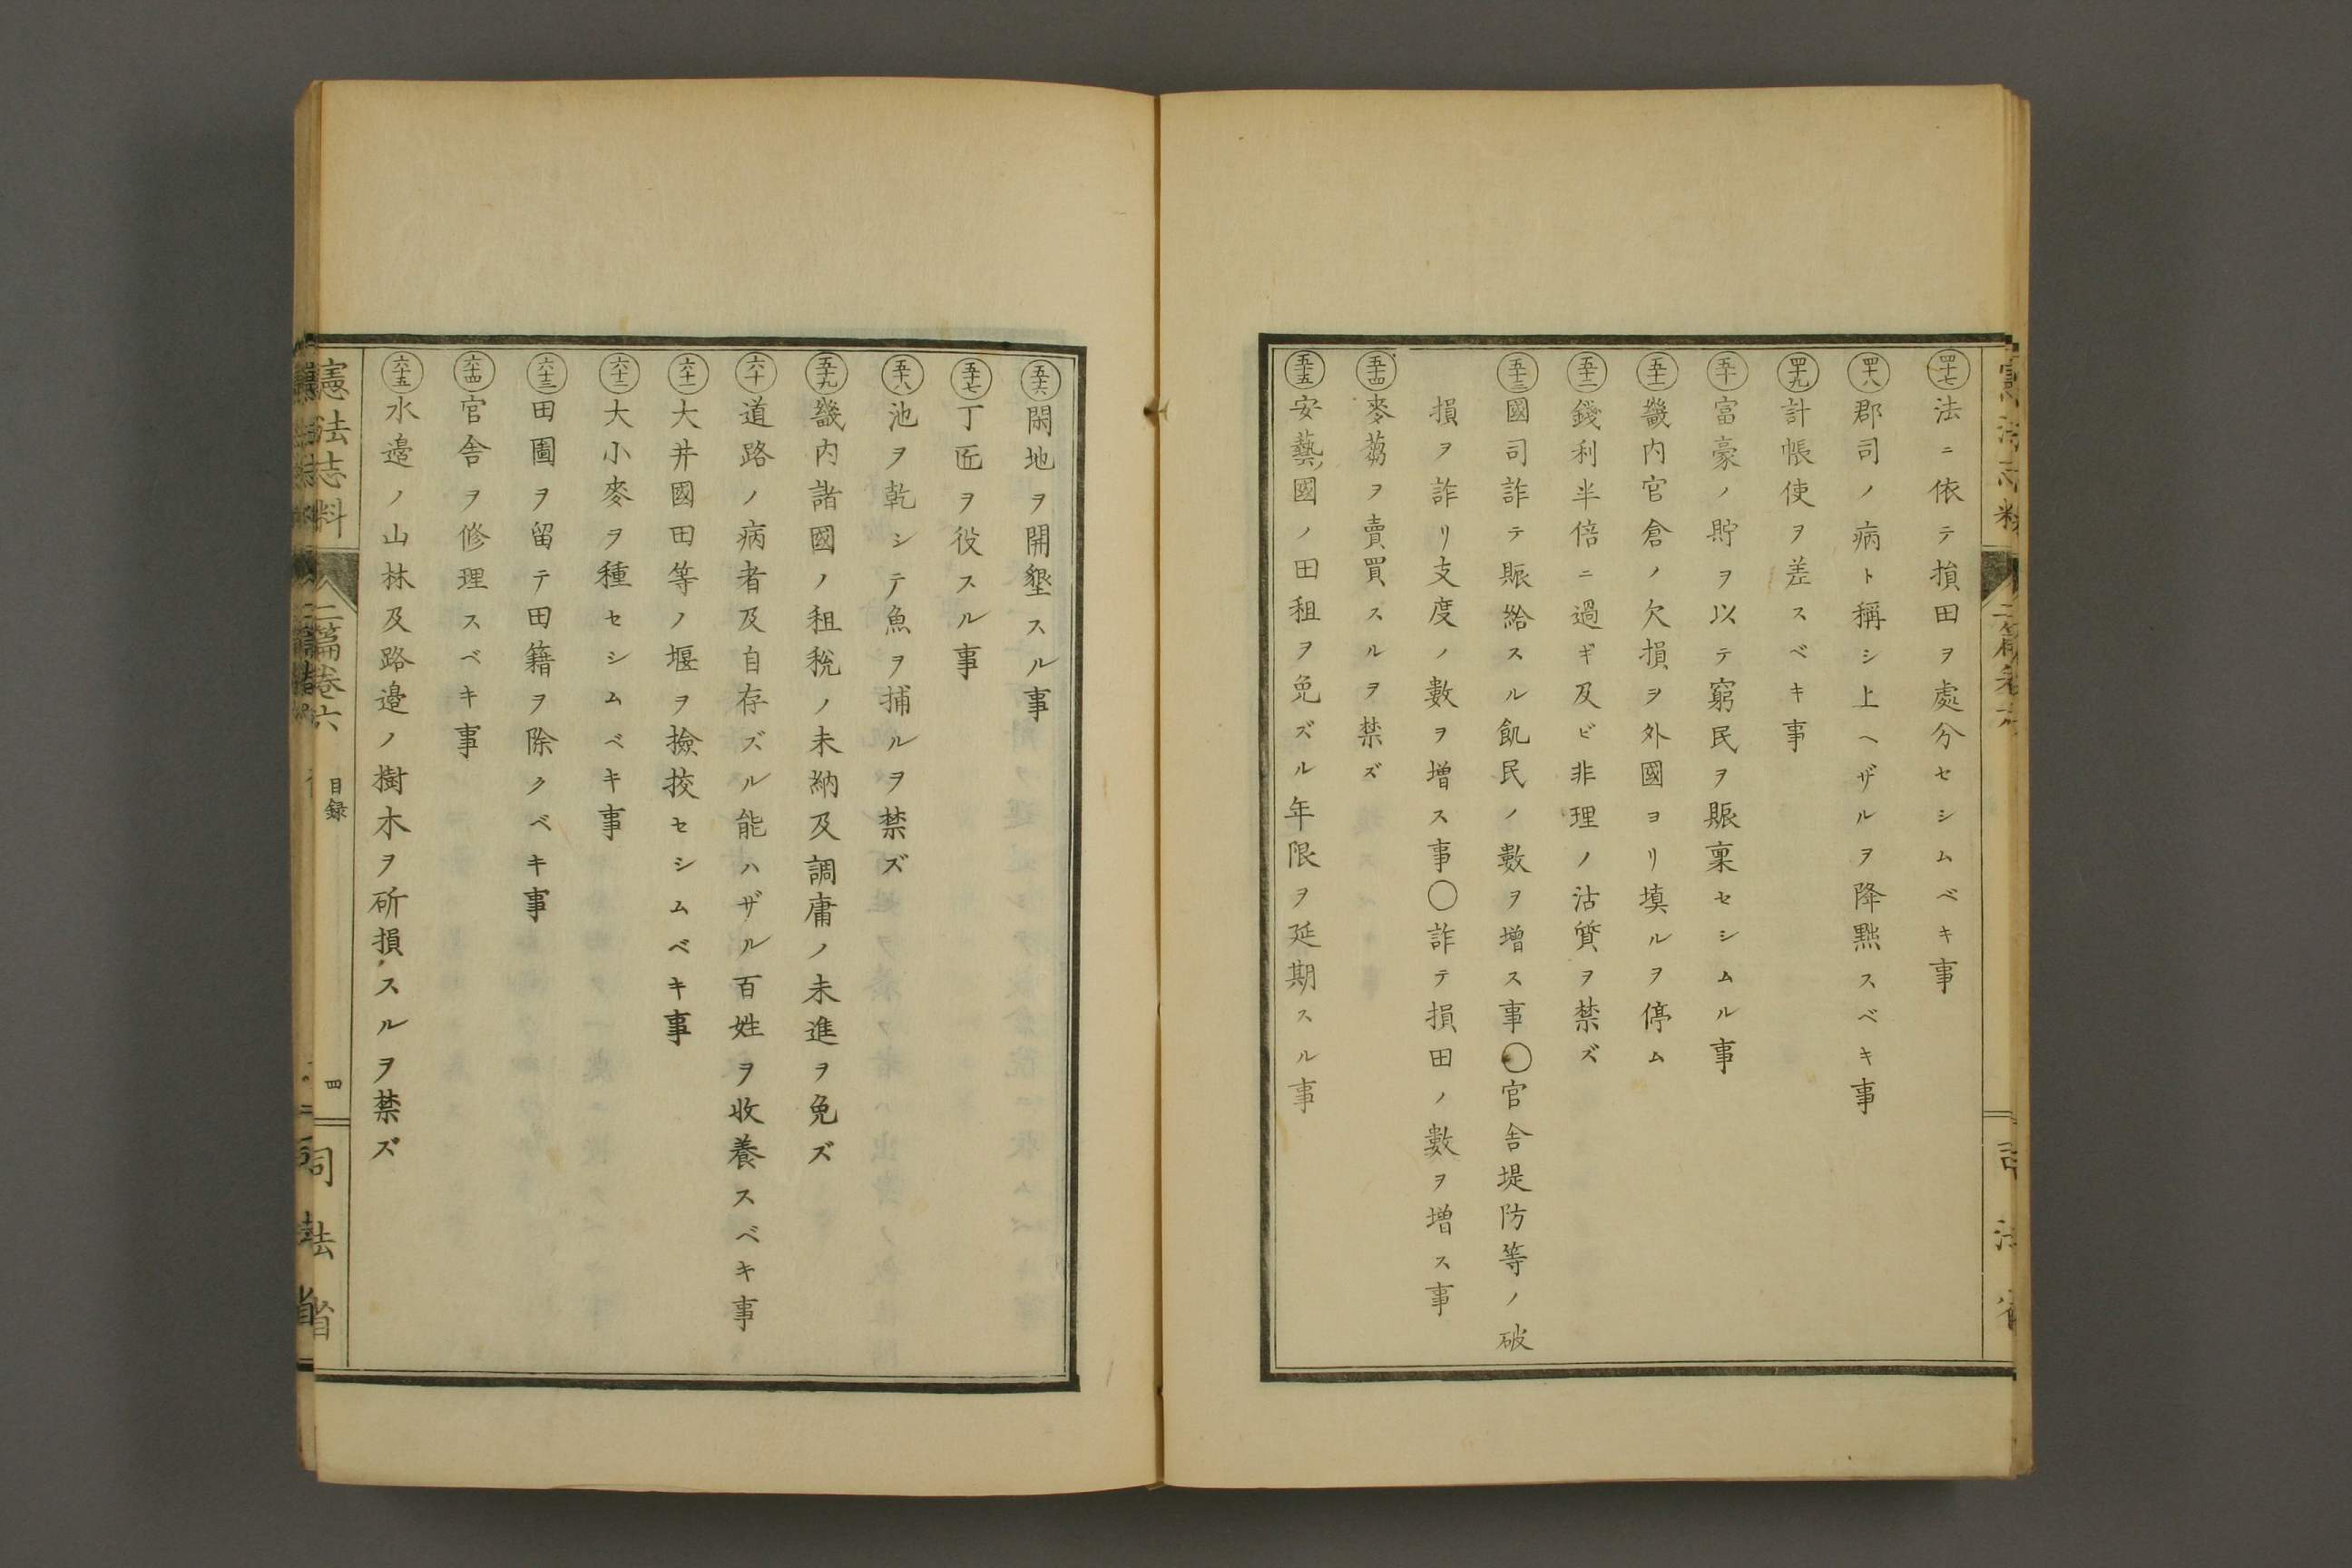 四十七 法ニ依テ損田ヲ處分セシムベキ事
四十八 郡司ノ病ト稱シ上ヘザルヲ降黜スベキ事
四十九 計帳使ヲ差スベキ事
五十 富豪ノ貯ヲ以テ窮民ヲ賑稟セシムル事
五十一 畿内官倉ノ欠損ヲ外國ヨリ塡ルヲ停ム
五十二 錢利半倍ニ過ギ及ビ非理ノ沽質ヲ禁ズ
五十三 國司詐テ賑給スル飢民ノ數ヲ増ス事〇官舎堤防等ノ破
損ヲ詐リ支度ノ數ヲ増ス事〇詐テ損田ノ數ヲ増ス事
五十四 麥蒭ヲ賣買スルヲ禁ズ
五十五 安藝國ノ田租ヲ免ズル年限ヲ延期スル事
五十六 閑地ヲ開墾スル事
五十七 丁匠ヲ役スル事
五十八 池ヲ乾シテ魚ヲ捕ルヲ禁ズ
五十九 畿内諸國ノ租稅ノ未納及調庸ノ未進ヲ免ズ
六十 道路ノ病者及自存ズル能ハザル百姓ヲ收養スベキ事
六十一 大井國田等ノ堰ヲ撿挍セシムベキ事
六十二 大小麥ヲ種セシムベキ事
六十三 田圖ヲ留テ田籍ヲ除クベキ事
六十四 官舎ヲ修理スベキ事
六十五 水邊ノ山林及路邊ノ樹木ヲ斫損スルヲ禁ズ
憲法志料 二篇卷六 目録 四 司法省